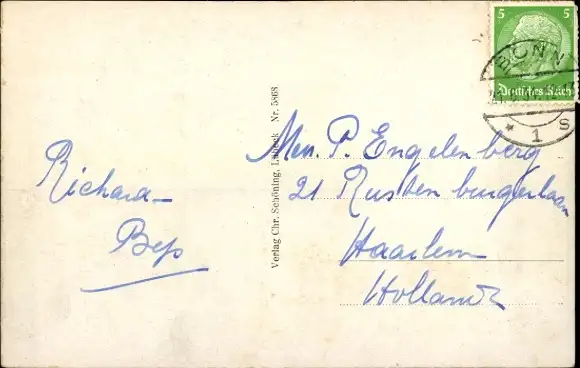 5 5
Deutsches Reich
BONN
* 1 s
Richard –
Bep
Verlag Chr. Schöning, Lübeck Nr. 5868
P. Engelenberg
21 Rustenburgerlaan
Haarlem
Holland